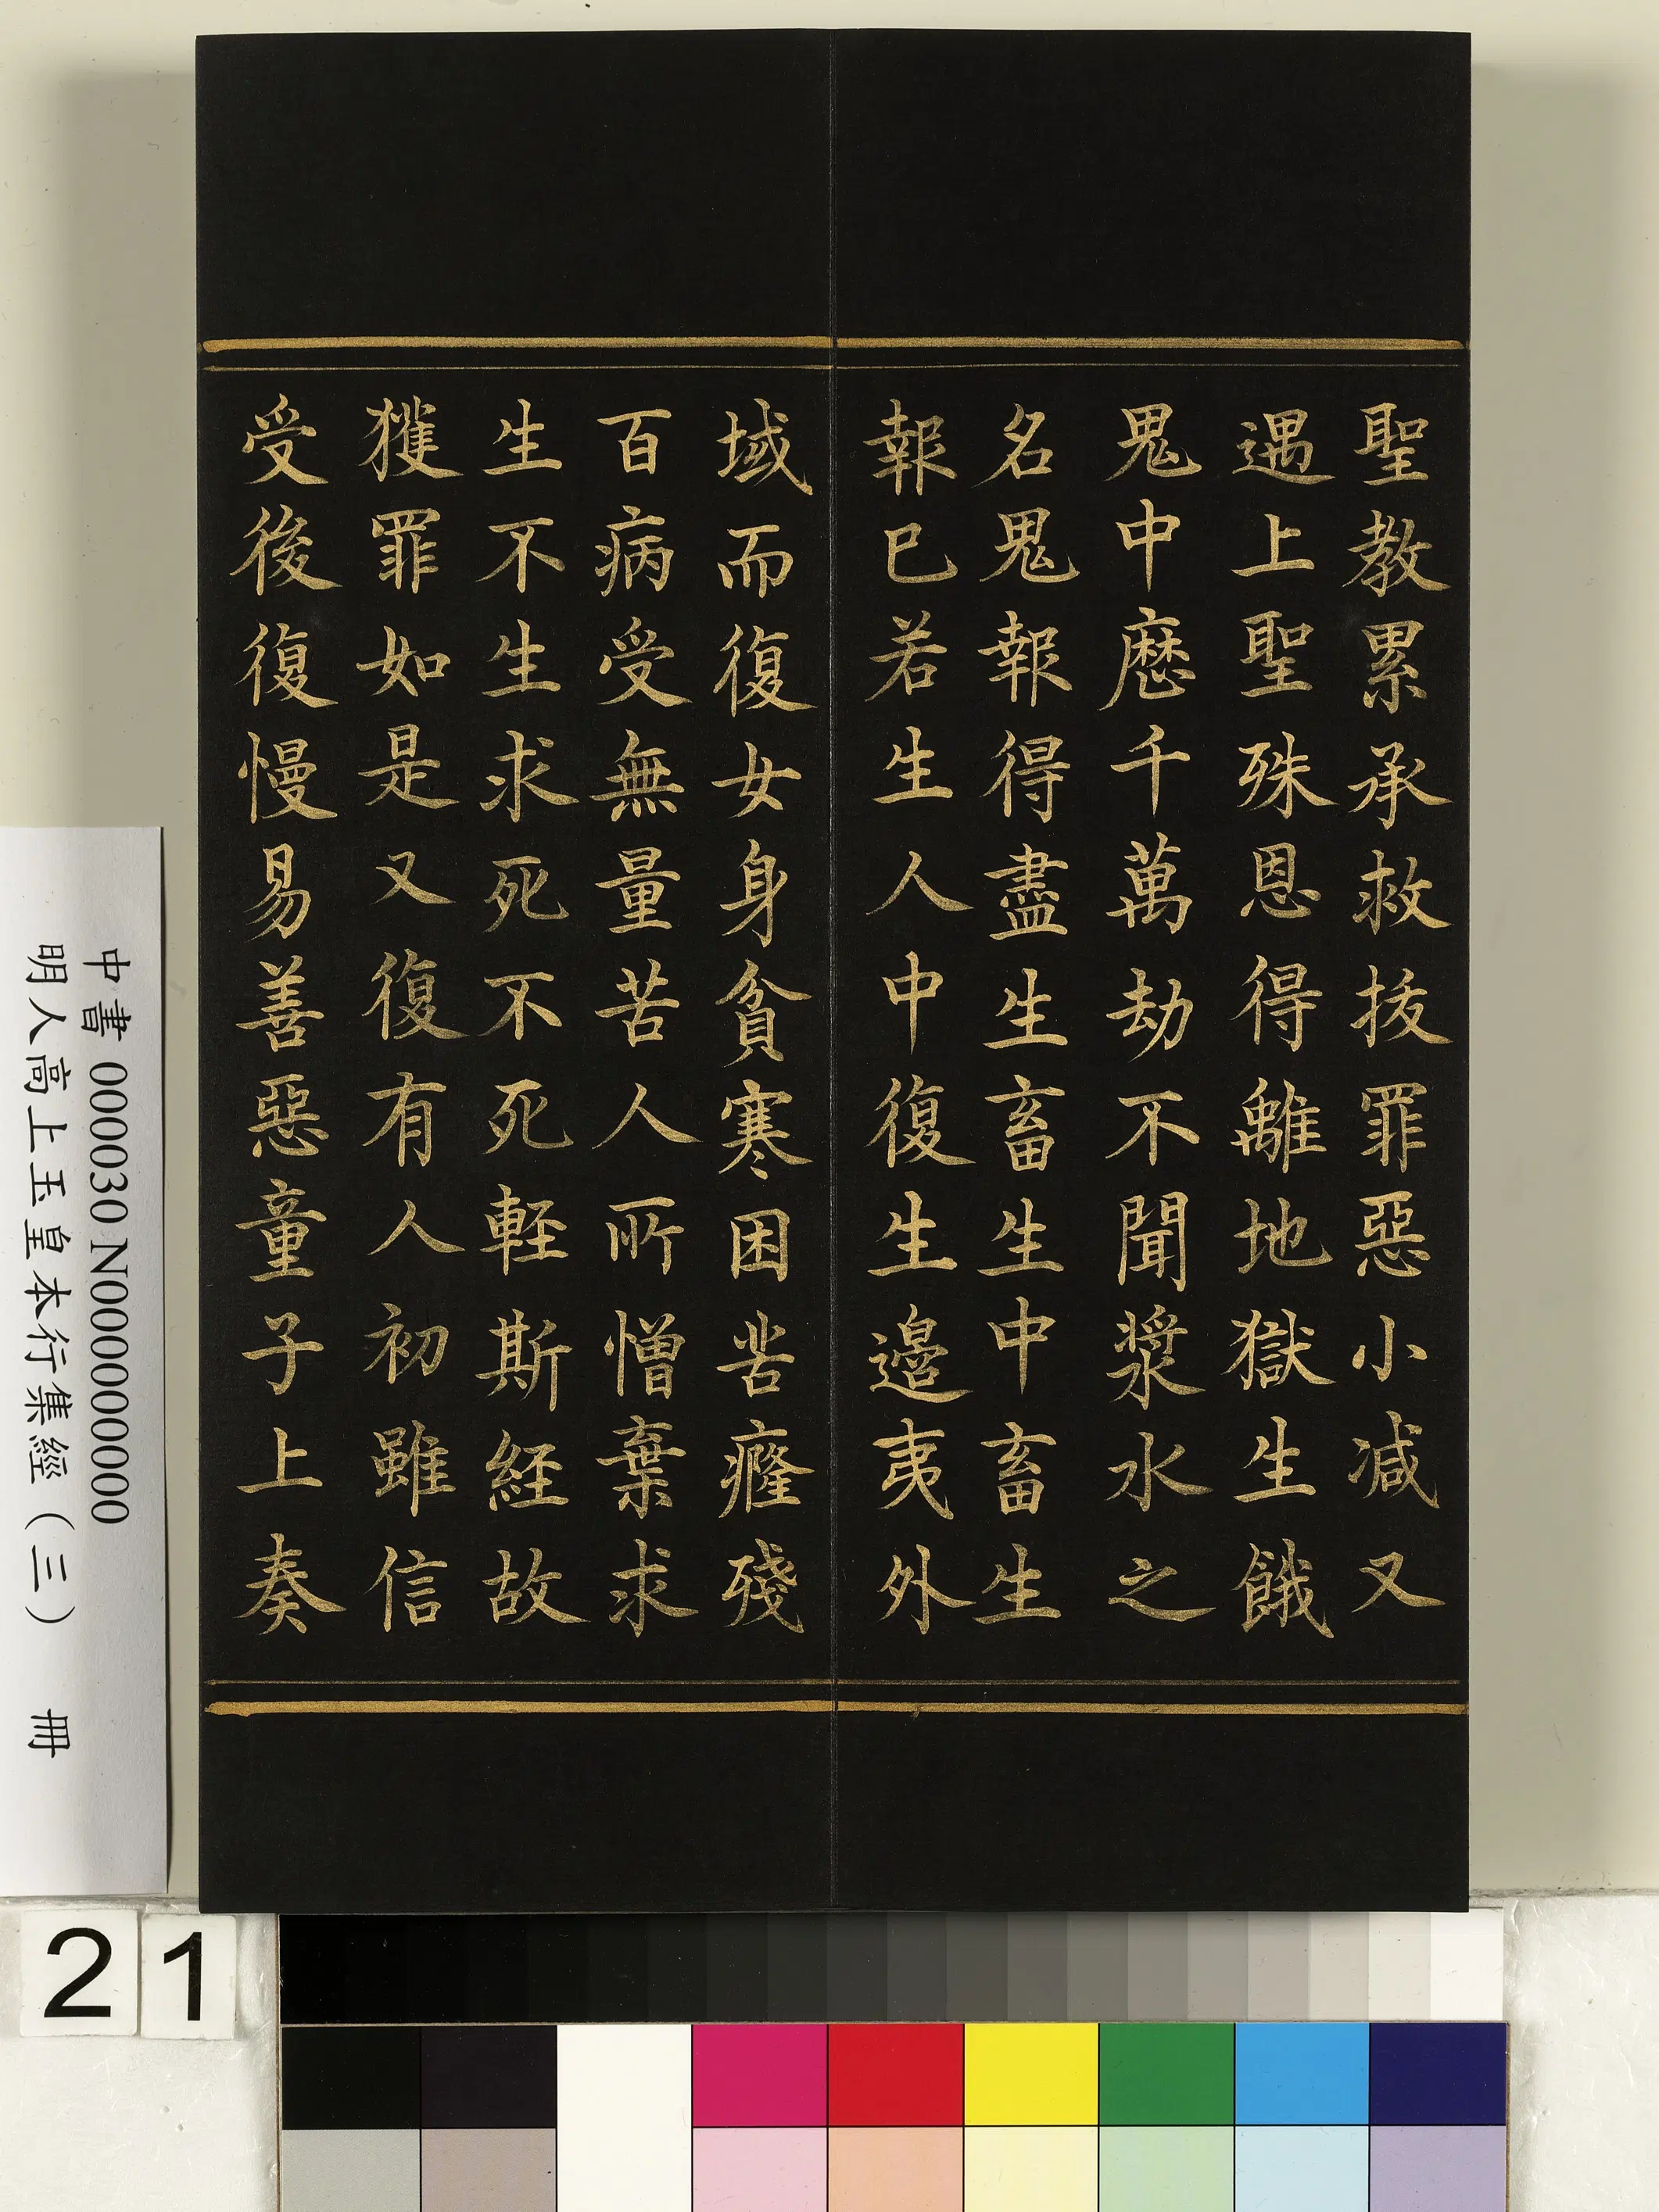 聖教累承救拔罪惡小减又
遇上聖殊恩得離地獄生餓
鬼中歷千萬劫不聞漿水之
名鬼報得盡生畜生中畜生
報已若生人中復生邊夷外
域而復女身貧寒困苦癃殘
百病受無量苦人所憎棄求
生不生求死不死軽斯経故
獲罪如是又復有人初雖信
受後復慢易善惡童子上奏
中書 000030 N000000000
明人高上玉皇本行集經（三） 冊
21